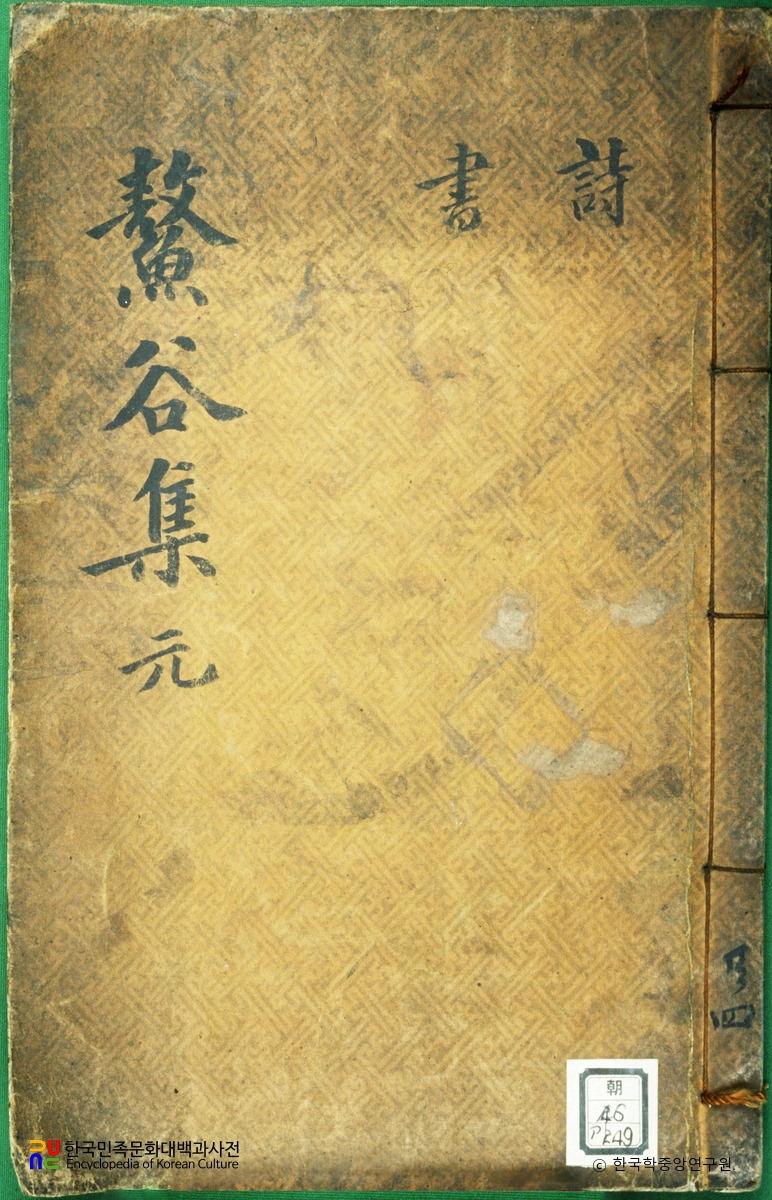 詩
書
鰲谷集 元
四
朝
46
한국민족문화대백과사전
Encyclopedia of Korean Culture
© 한국학중앙연구원